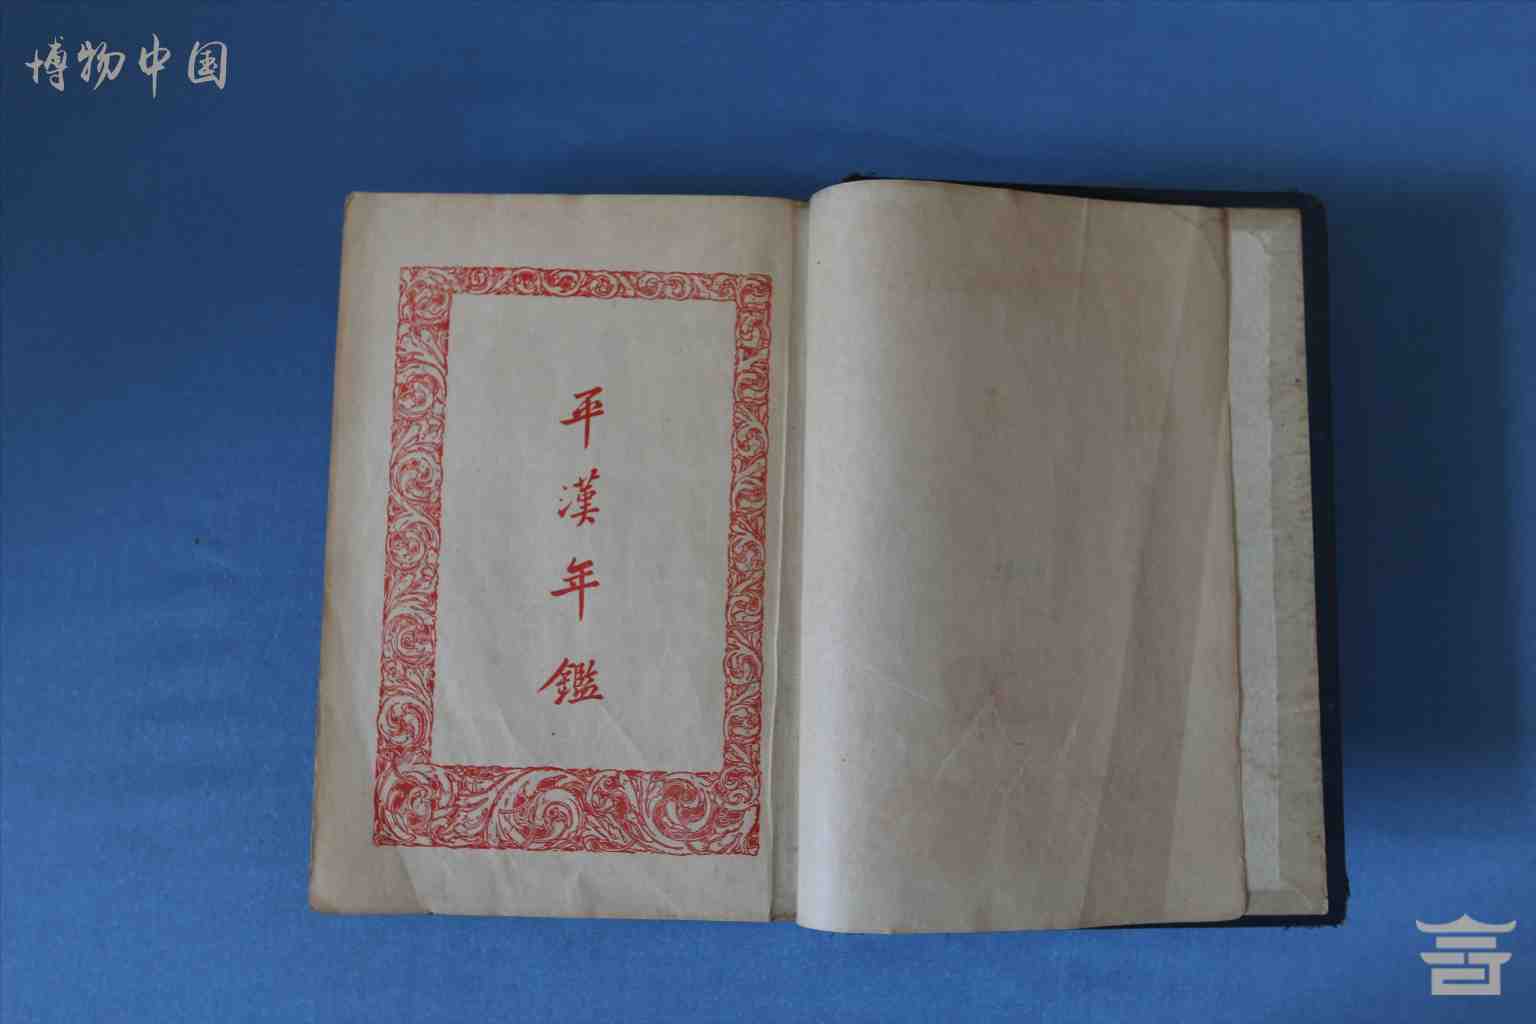 博物中国
平漢年鑑